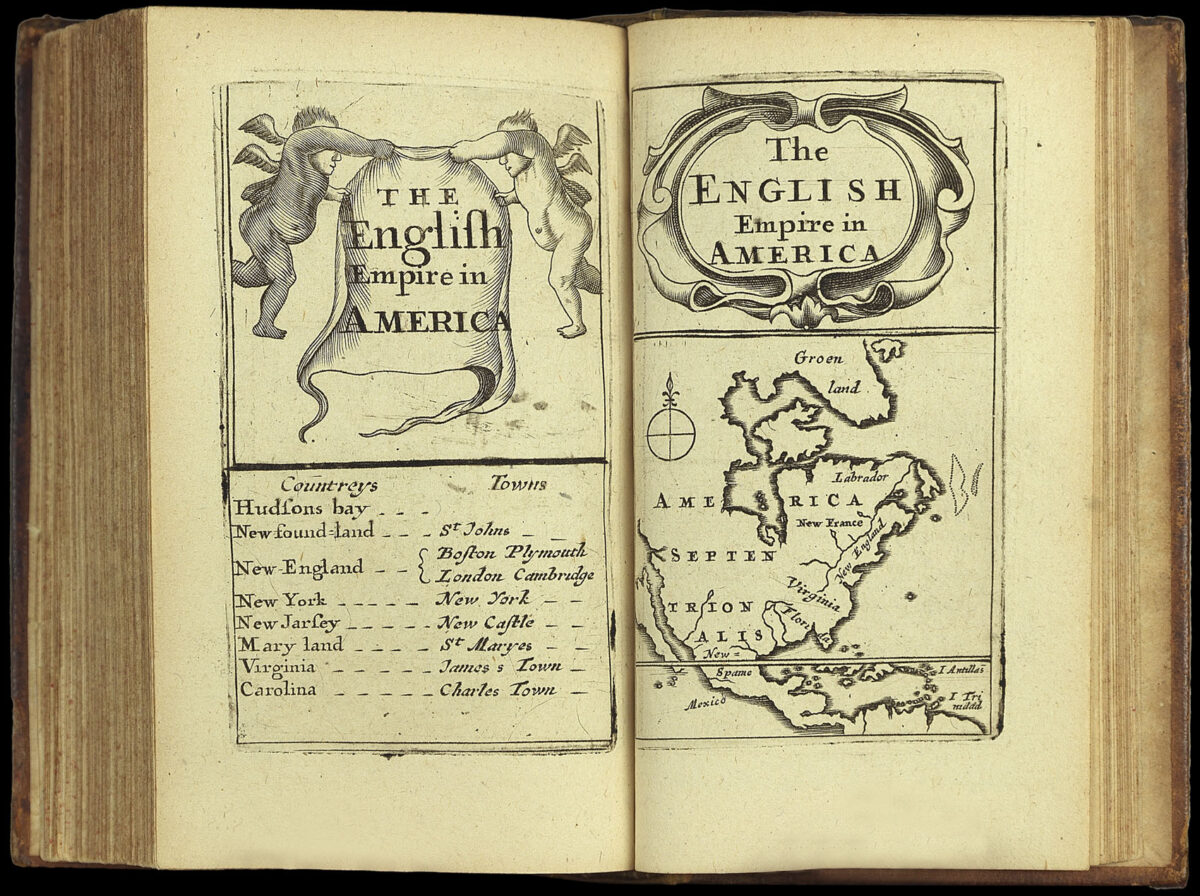 THE
Engliſh
Empire in
AMERICA
Countreys Towns
Hudſons bay _ _ _
New found=land _ _ _ St Johns _ _
New-England _ _ { Boſton Plymouth
London Cambridge
New York _ _ _ _ _ New York _ _
New Jarſey _ _ _ _ _ New Caſtle _ _
Mary land _ _ _ _ St Maryes _ _
Virginia _ _ _ _ _ James's Town _
Carolina _ _ _ _ _ Charles Town _
The
ENGLISH
Empire in
AMERICA
Groen
land
Labrador
AME RICA
New France
New England
SEPTEN
Virginia
TRION
Florida
ALIS
New=
Spame
I Antillas
Mexico
I Tri
nidad